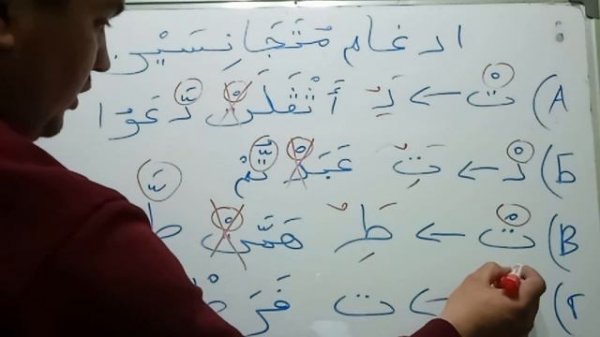 ادغام مُتَجَانِسَيْن
A) تْ ← دَِ أَثْقَلَتْ دَّعَوْا
Б) دْ ← تَِ عَبَدْ تُّمْ
В) تْ ← طَِ هَمَّتْ طَّ
г) ← ت فَرَ